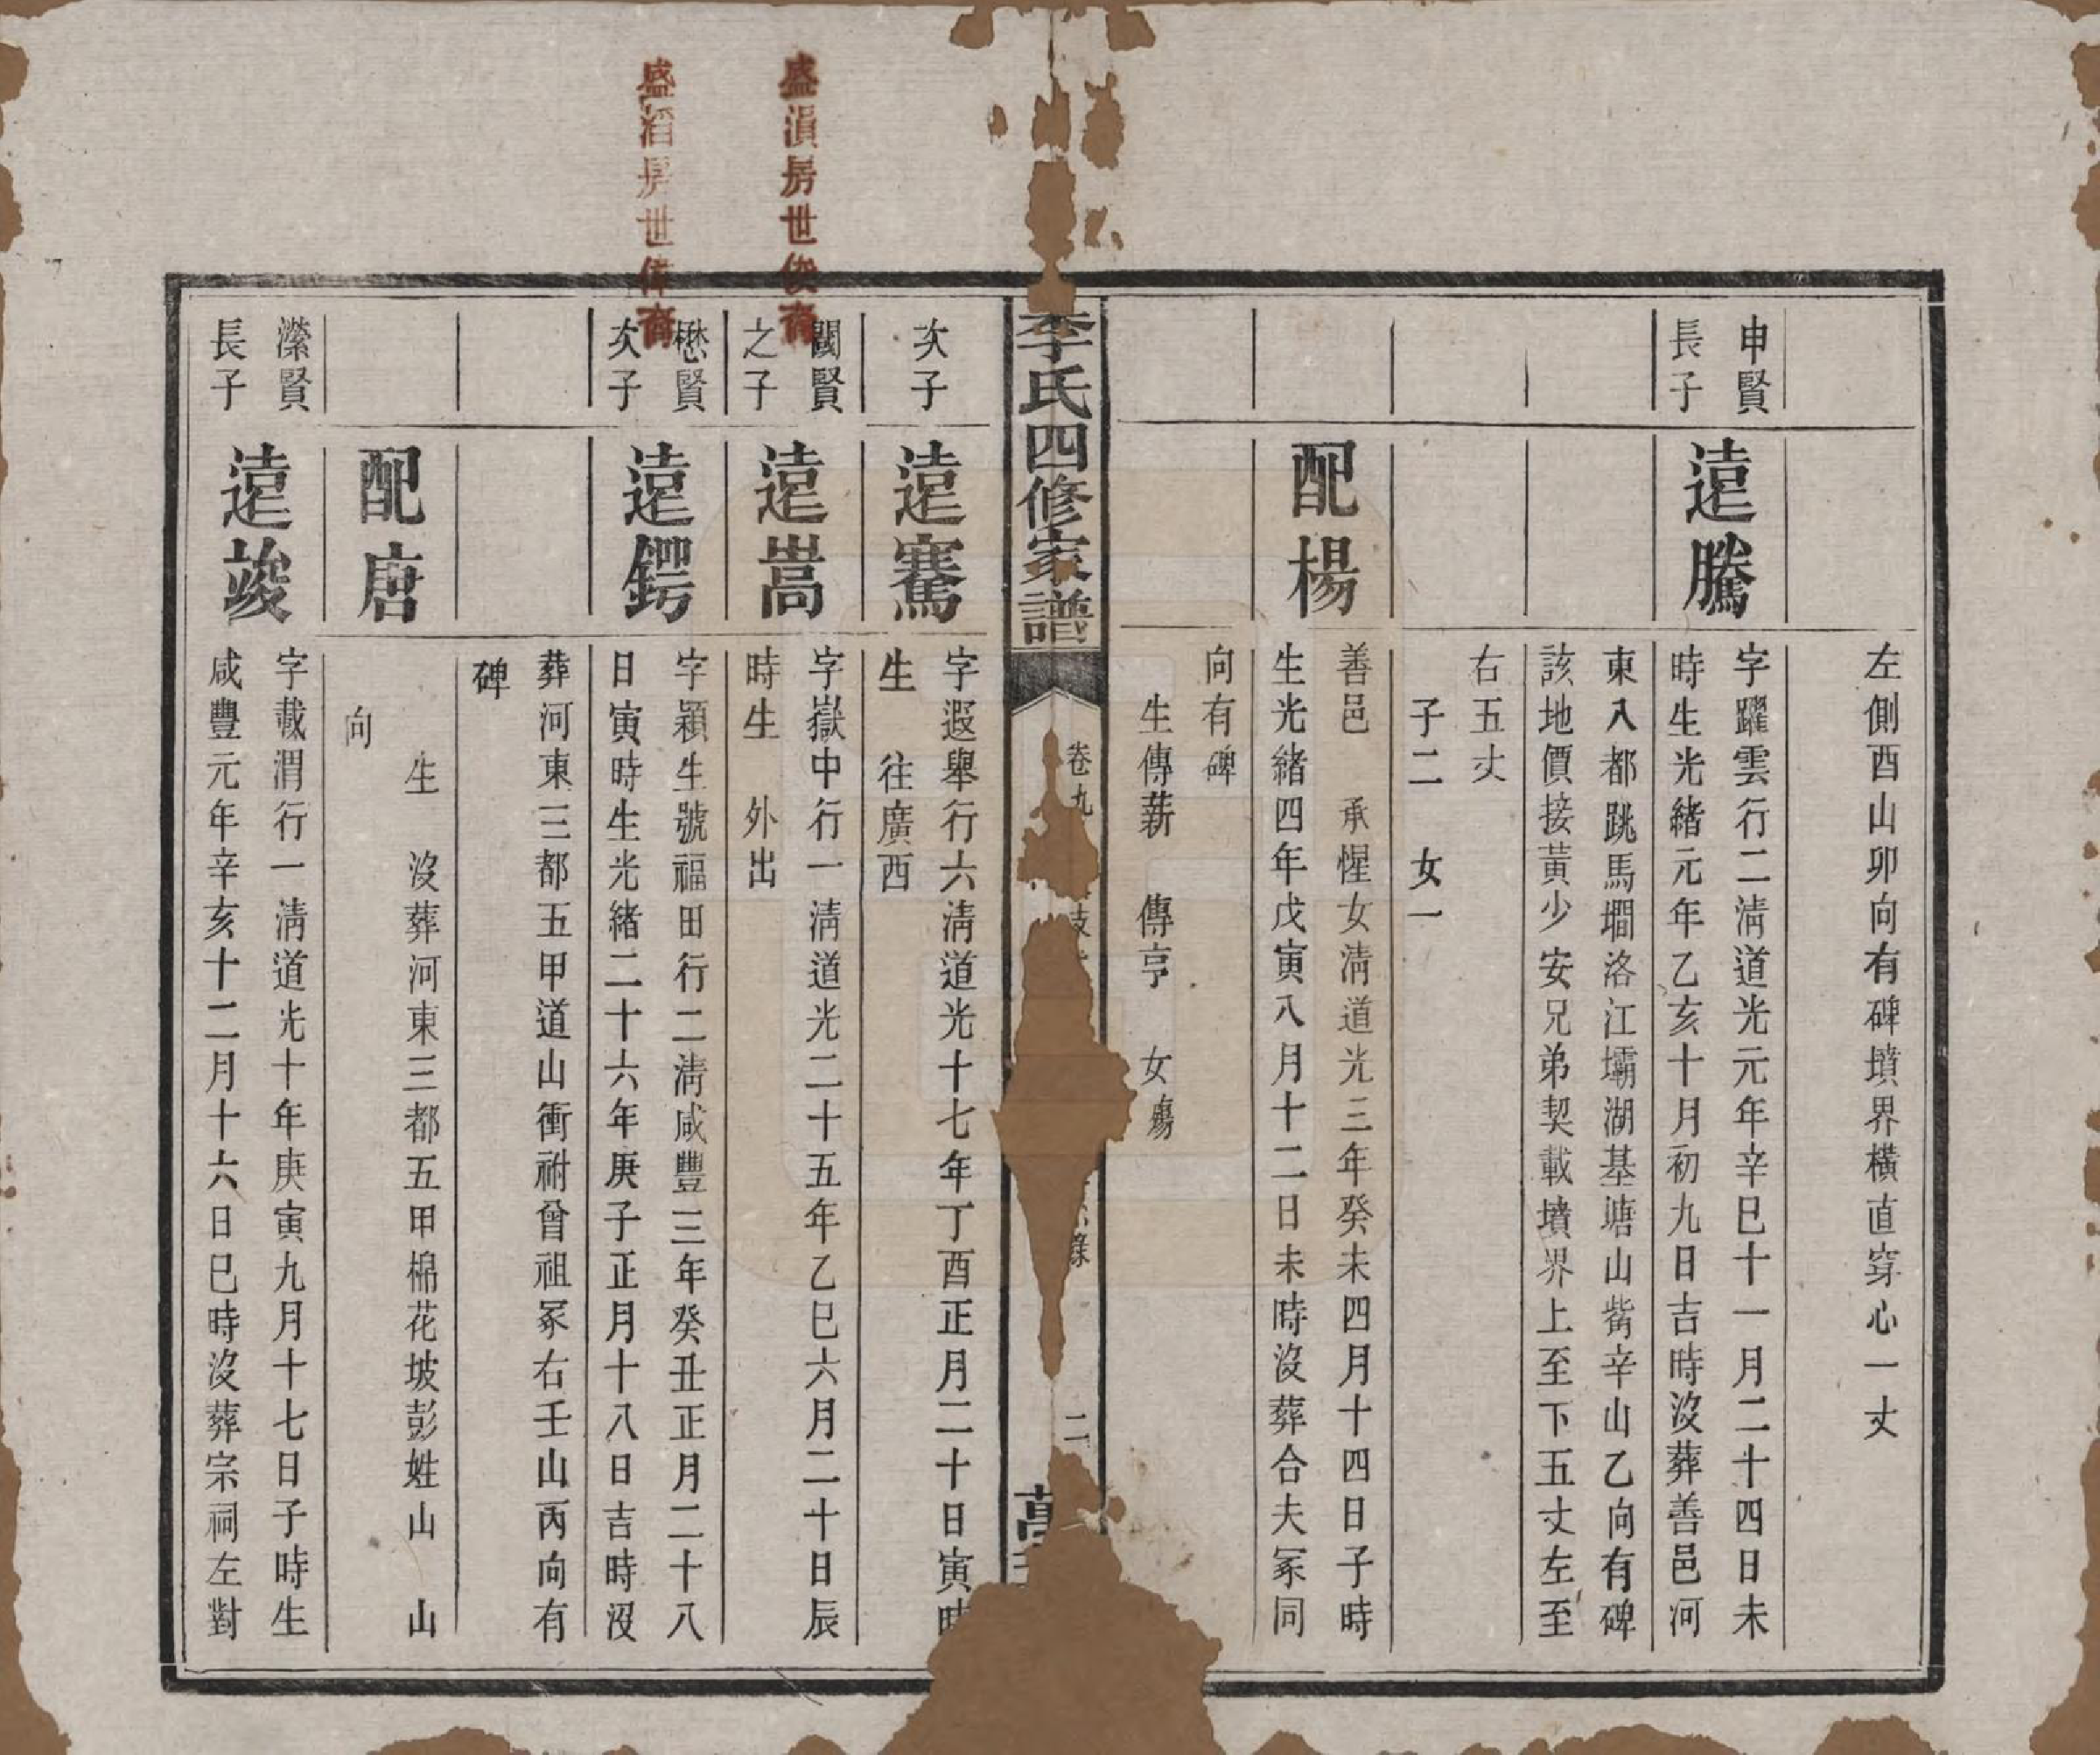 左側酉山卯向有碑墳界橫直穿心一丈
申賢
長子
遠騰
字躍雲行二淸道光元年辛巳十一月二十四日未
時生光緒元年乙亥十月初九日吉時沒葬善邑河
東入都跳馬㵎洛江壩湖基塘山觜辛山乙向有碑
該地價接黃少安兄弟契載墳界上至下五丈左至
右五丈
子二　女一
配楊
善邑　承惺女淸道光三年癸未四月十四日子時
生光緒四年戊寅八月十二日未時沒葬合夫冢同
向有碑
生傳薪　傳亨　女殤
李氏四修家譜
卷九
二
萬
次子
遠騫
字遐舉行六淸道光十七年丁酉正月二十日寅時
生　往廣西
盛湏房世俊裔
闓賢
之子
遠嵩
字嶽中行一淸道光二十五年乙巳六月二十日辰
時生　外出
盛滔房世偉裔
懋賢
次子
遠鍔
字穎生號福田行二淸咸豐三年癸丑正月二十八
日寅時生光緒二十六年庚子正月十八日吉時沒
葬河東三都五甲道山衝祔曾祖冢右壬山丙向有
碑
配唐
生　沒葬河東三都五甲棉花坡彭姓山　山
向
瀠賢
長子
遠竣
字載渭行一淸道光十年庚寅九月十七日子時生
咸豐元年辛亥十二月十六日巳時沒葬宗祠左對